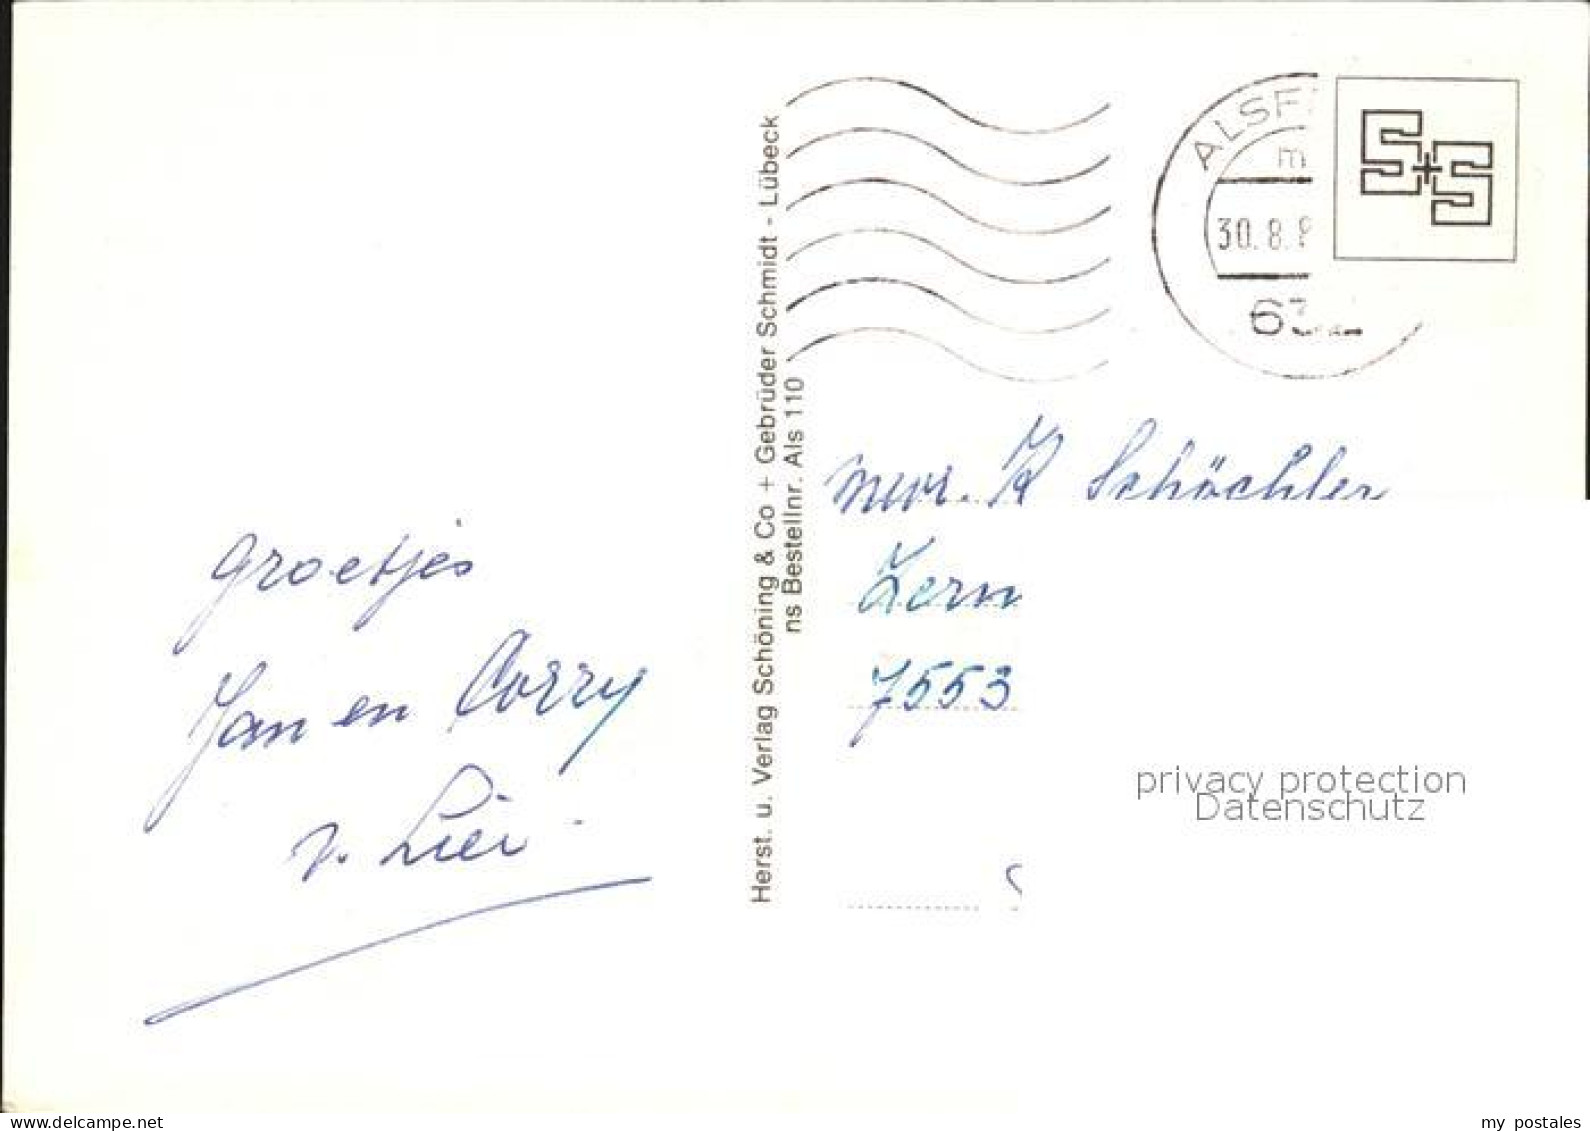 groetjes
Jan en Corry
v. Lier
Herst. u. Verlag Schöning & Co + Gebrüder Schmidt - Lübeck
ns Bestellnr. Als 110
ALSF
m
30.8.8
63
S+S
mevr. K Schöchler
7553
privacy protection
Datenschutz
www.delcampe.net
my_postales